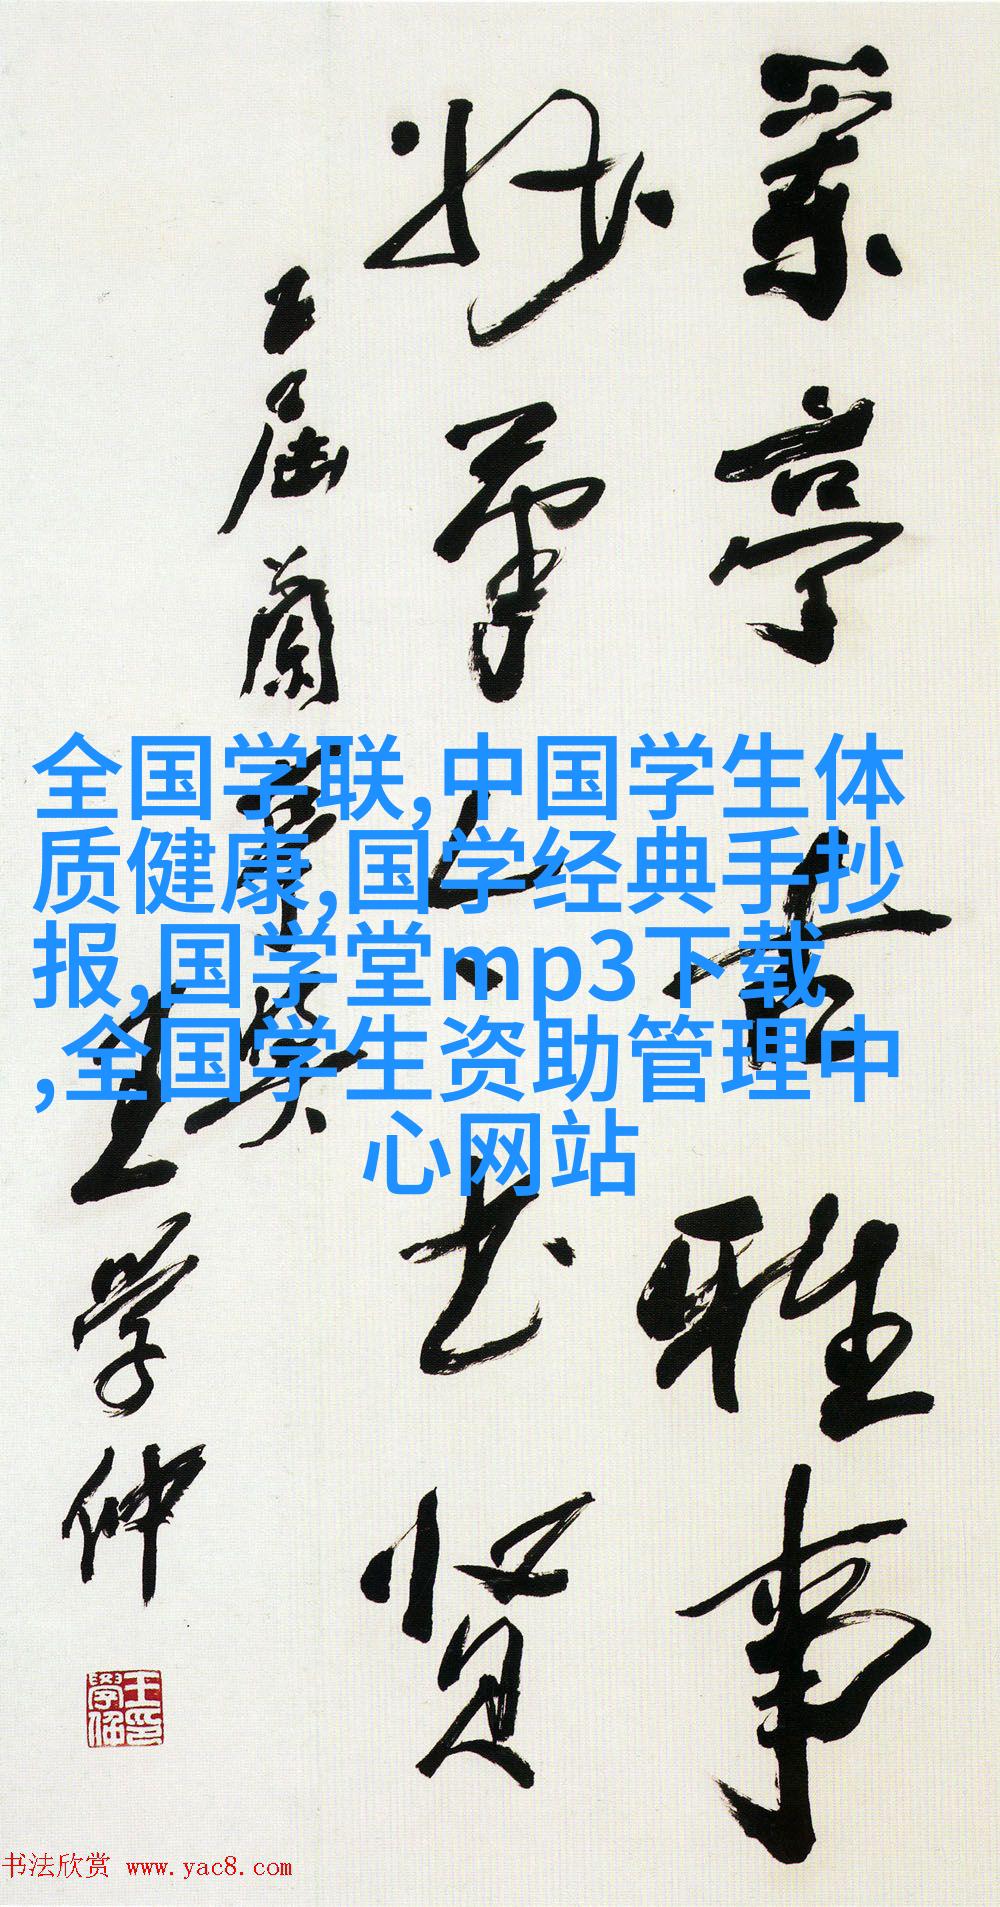 兰亭玄雅事
妙笔今书贤
五届兰亭奖
王学仲
王学仲印
全国学联,中国学生体
质健康,国学经典手抄
报,国学堂mp3下载
,全国学生资助管理中
心网站
书法欣赏 www.yac8.com